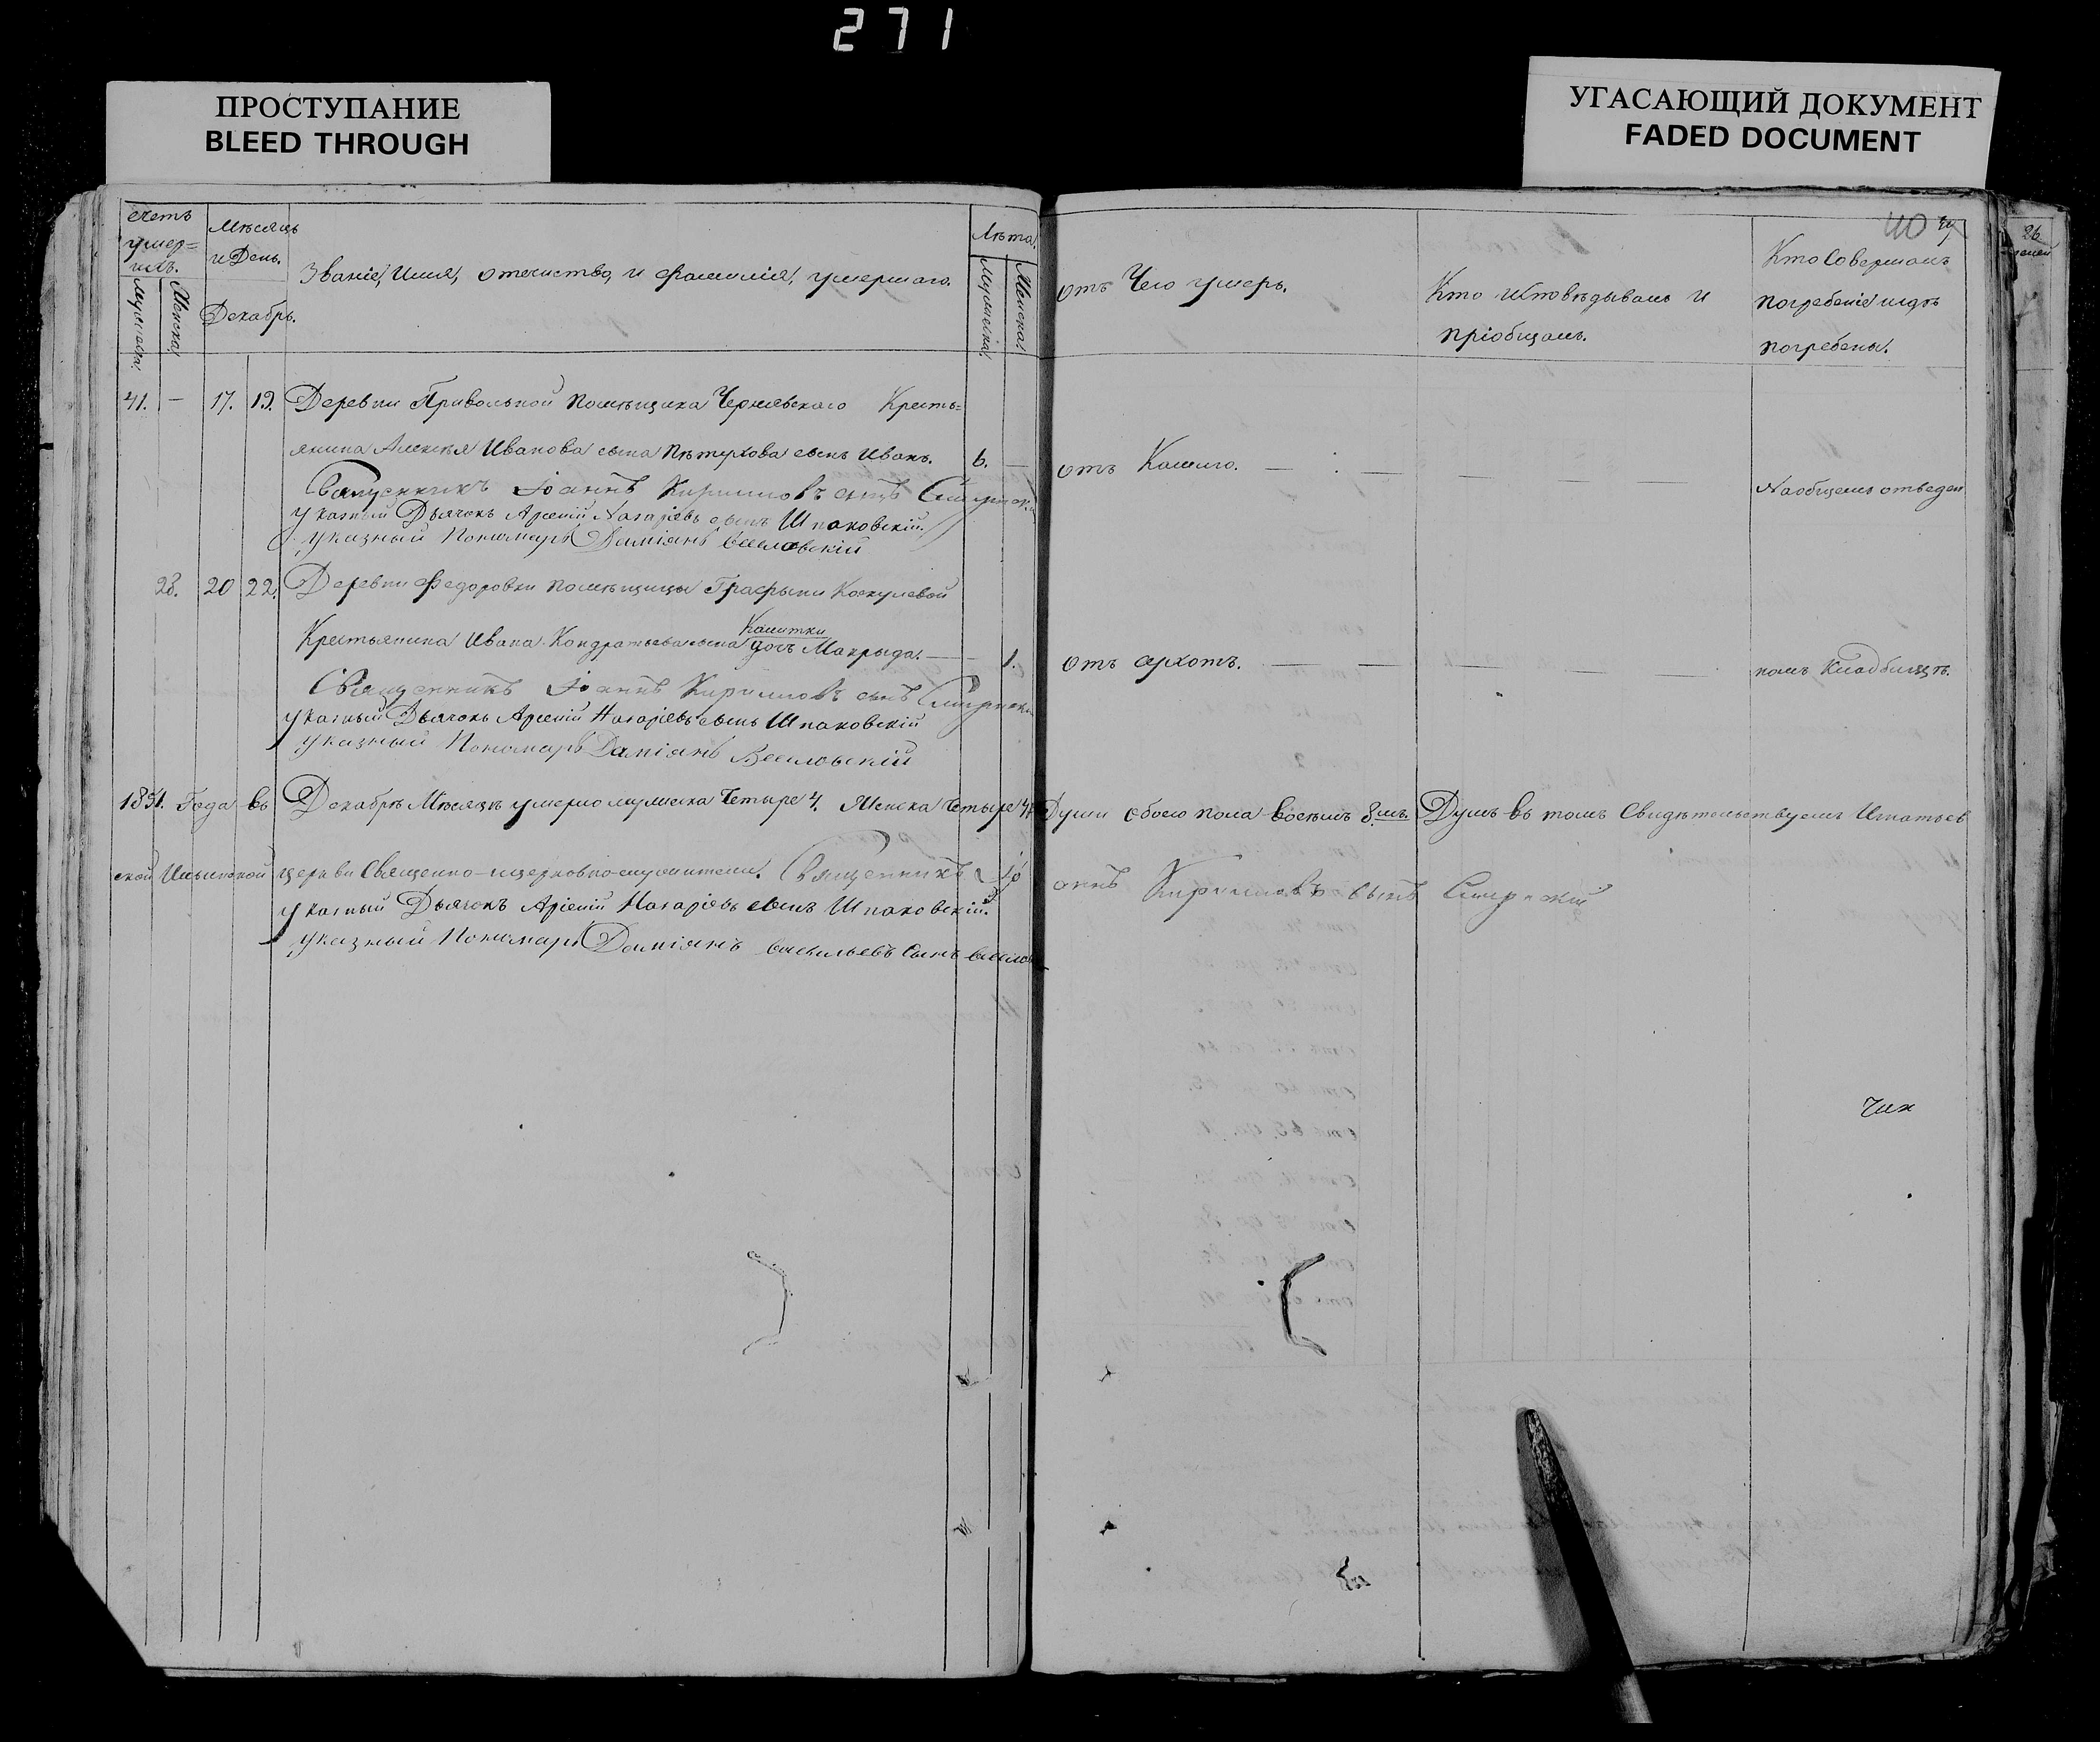 271
ПРОСТУПАНИЕ
BLEED THROUGH
УГАСАЮЩИЙ ДОКУМЕНТ
FADED DOCUMENT
40
счетъ умер=шихъ.
Мужеска.
Женска.
Мѣсяцъ и День.
Декабрь.
Званіе, Имя, отечество, и фамилія, умершаго.
Лѣта.
Мужеска.
Женска.
отъ Чего умеръ.
Кто исповѣдывалъ и
пріобщалъ.
Кто Совершалъ
погребеніе и гдѣ
погребены.
41. — 17. 19. Деревни Привольной помѣщика Чернявского Кресть=
янина Алексѣя Иванова сына Пѣтухова сынъ Иванъ. 6. — отъ Кашлю. — — — —
На общемъ отведен
Священникъ Іоаннъ Кирилловъ сынъ
указный Дьячокъ Арсеній Назарьевъ сынъ Шпаковскій.
указный Пономарь Даміянъ Веселовскій
28. 20 22. Деревни Федоровки помѣщицы Графыни
Калитки
Крестьянина Ивана Кондратьева сына дочь Макрида. — 1. отъ сухотъ. — — — — номъ Кладбищѣ.
Священникъ Іоаннъ Кирилловъ сынъ
указный Дьячокъ Арсеній Назарьевъ сынъ Шпаковскій
указный Пономарь Даміянъ Веселовскій
1851. Года въ Декабрѣ Мѣсяцѣ умерло мужеска Четыре 4. Женска Четыре 4. Души обоего пола восемъ 8мъ. Душъ въ томъ Свидѣтельствуемъ Игнатьев
ской Ильинской церкви Священно-церковнослужители. Священникъ Іоаннъ Кирилловъ сынъ
указный Дьячокъ Арсеній Назарьевъ сынъ Шпаковскій.
указный Пономарь Даміянъ Васильевъ Сынъ Веселов